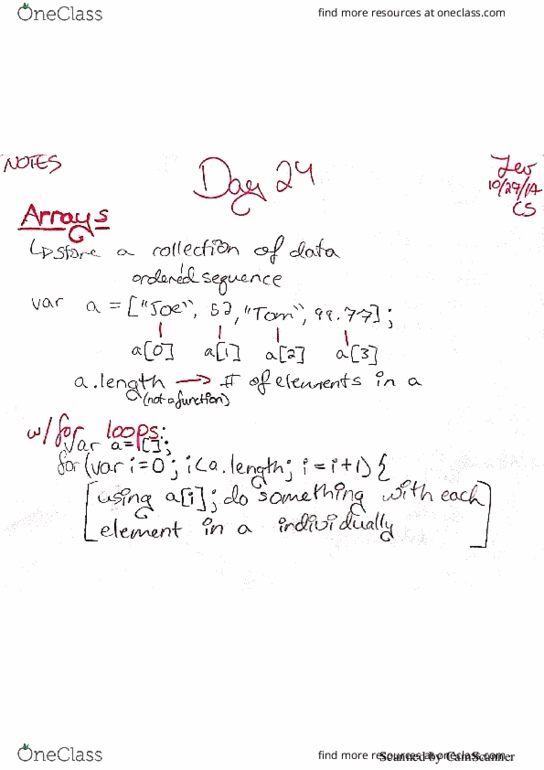 OneClass
find more resources at oneclass.com
NOTES
Day 24
10/29/14
CS
Arrays
↳ store a collection of data
ordered sequence
var a = ["Joe", 52, "Tom", 99.77];
a[0] a[1] a[2] a[3]
a.length → # of elements in a
(not a function)
w/for loops:
var a=[];
for (var i=0; i<a.length; i=i+1) {
[using a[i]; do something with each
element in a individually]
OneClass
find more resources at oneclass.com
Scanned by CamScanner